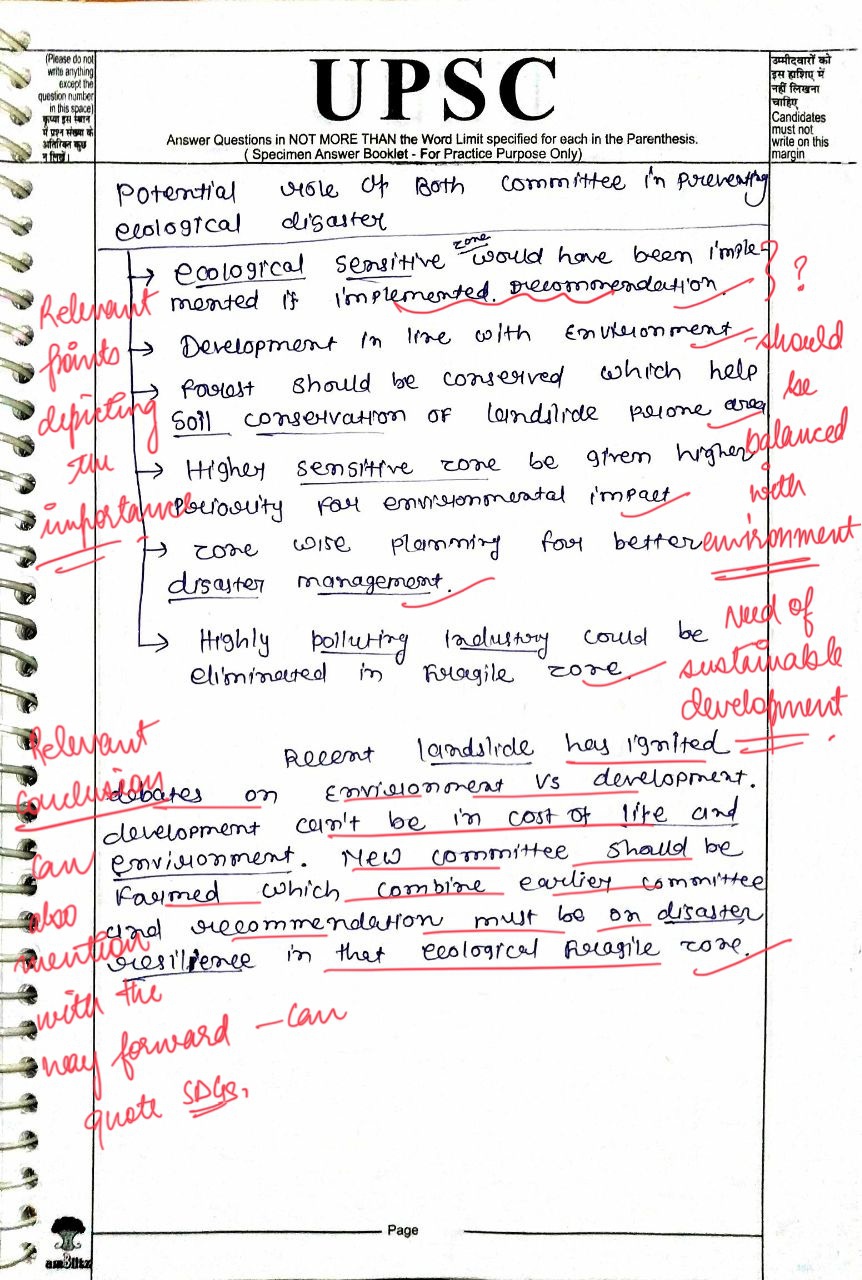 (Please do not
write anything
except the
question number
in this space)
कृपया इस स्थान
में प्रश्न संख्या के
अतिरिक्त कुछ
न लिखें।
UPSC
Answer Questions in NOT MORE THAN the Word Limit specified for each in the Parenthesis.
( Specimen Answer Booklet - For Practice Purpose Only)
उम्मीदवारों को
इस हाशिए में
नहीं लिखना
चाहिए
Candidates
must not
write on this
margin
Potential role of Both committee in preventing
ecological disaster
→ ecological sensitive zone would have been imple-
mented if implemented. recommendation.
?
→ Development in line with environment
→ Forest should be conserved which help
soil conservation of landslide prone area
→ Higher sensitive zone be given higher
priority for environmental impact
→ zone wise planning for better
disaster management.
→ Highly polluting industry could be
eliminated in fragile zone.
Relevant
points
depicting
the
importance
- should
be
balanced
with
environment
Need of
sustainable
development.
Recent landslide has ignited
debates on environment vs development.
development can't be in cost of life and
environment. New committee should be
formed which combine earlier committee
and recommendation must be on disaster
resilience in that ecological fragile zone.
Relevant
conclusion
can
also
mention
with the
way forward - can
quote SDGs,
Page